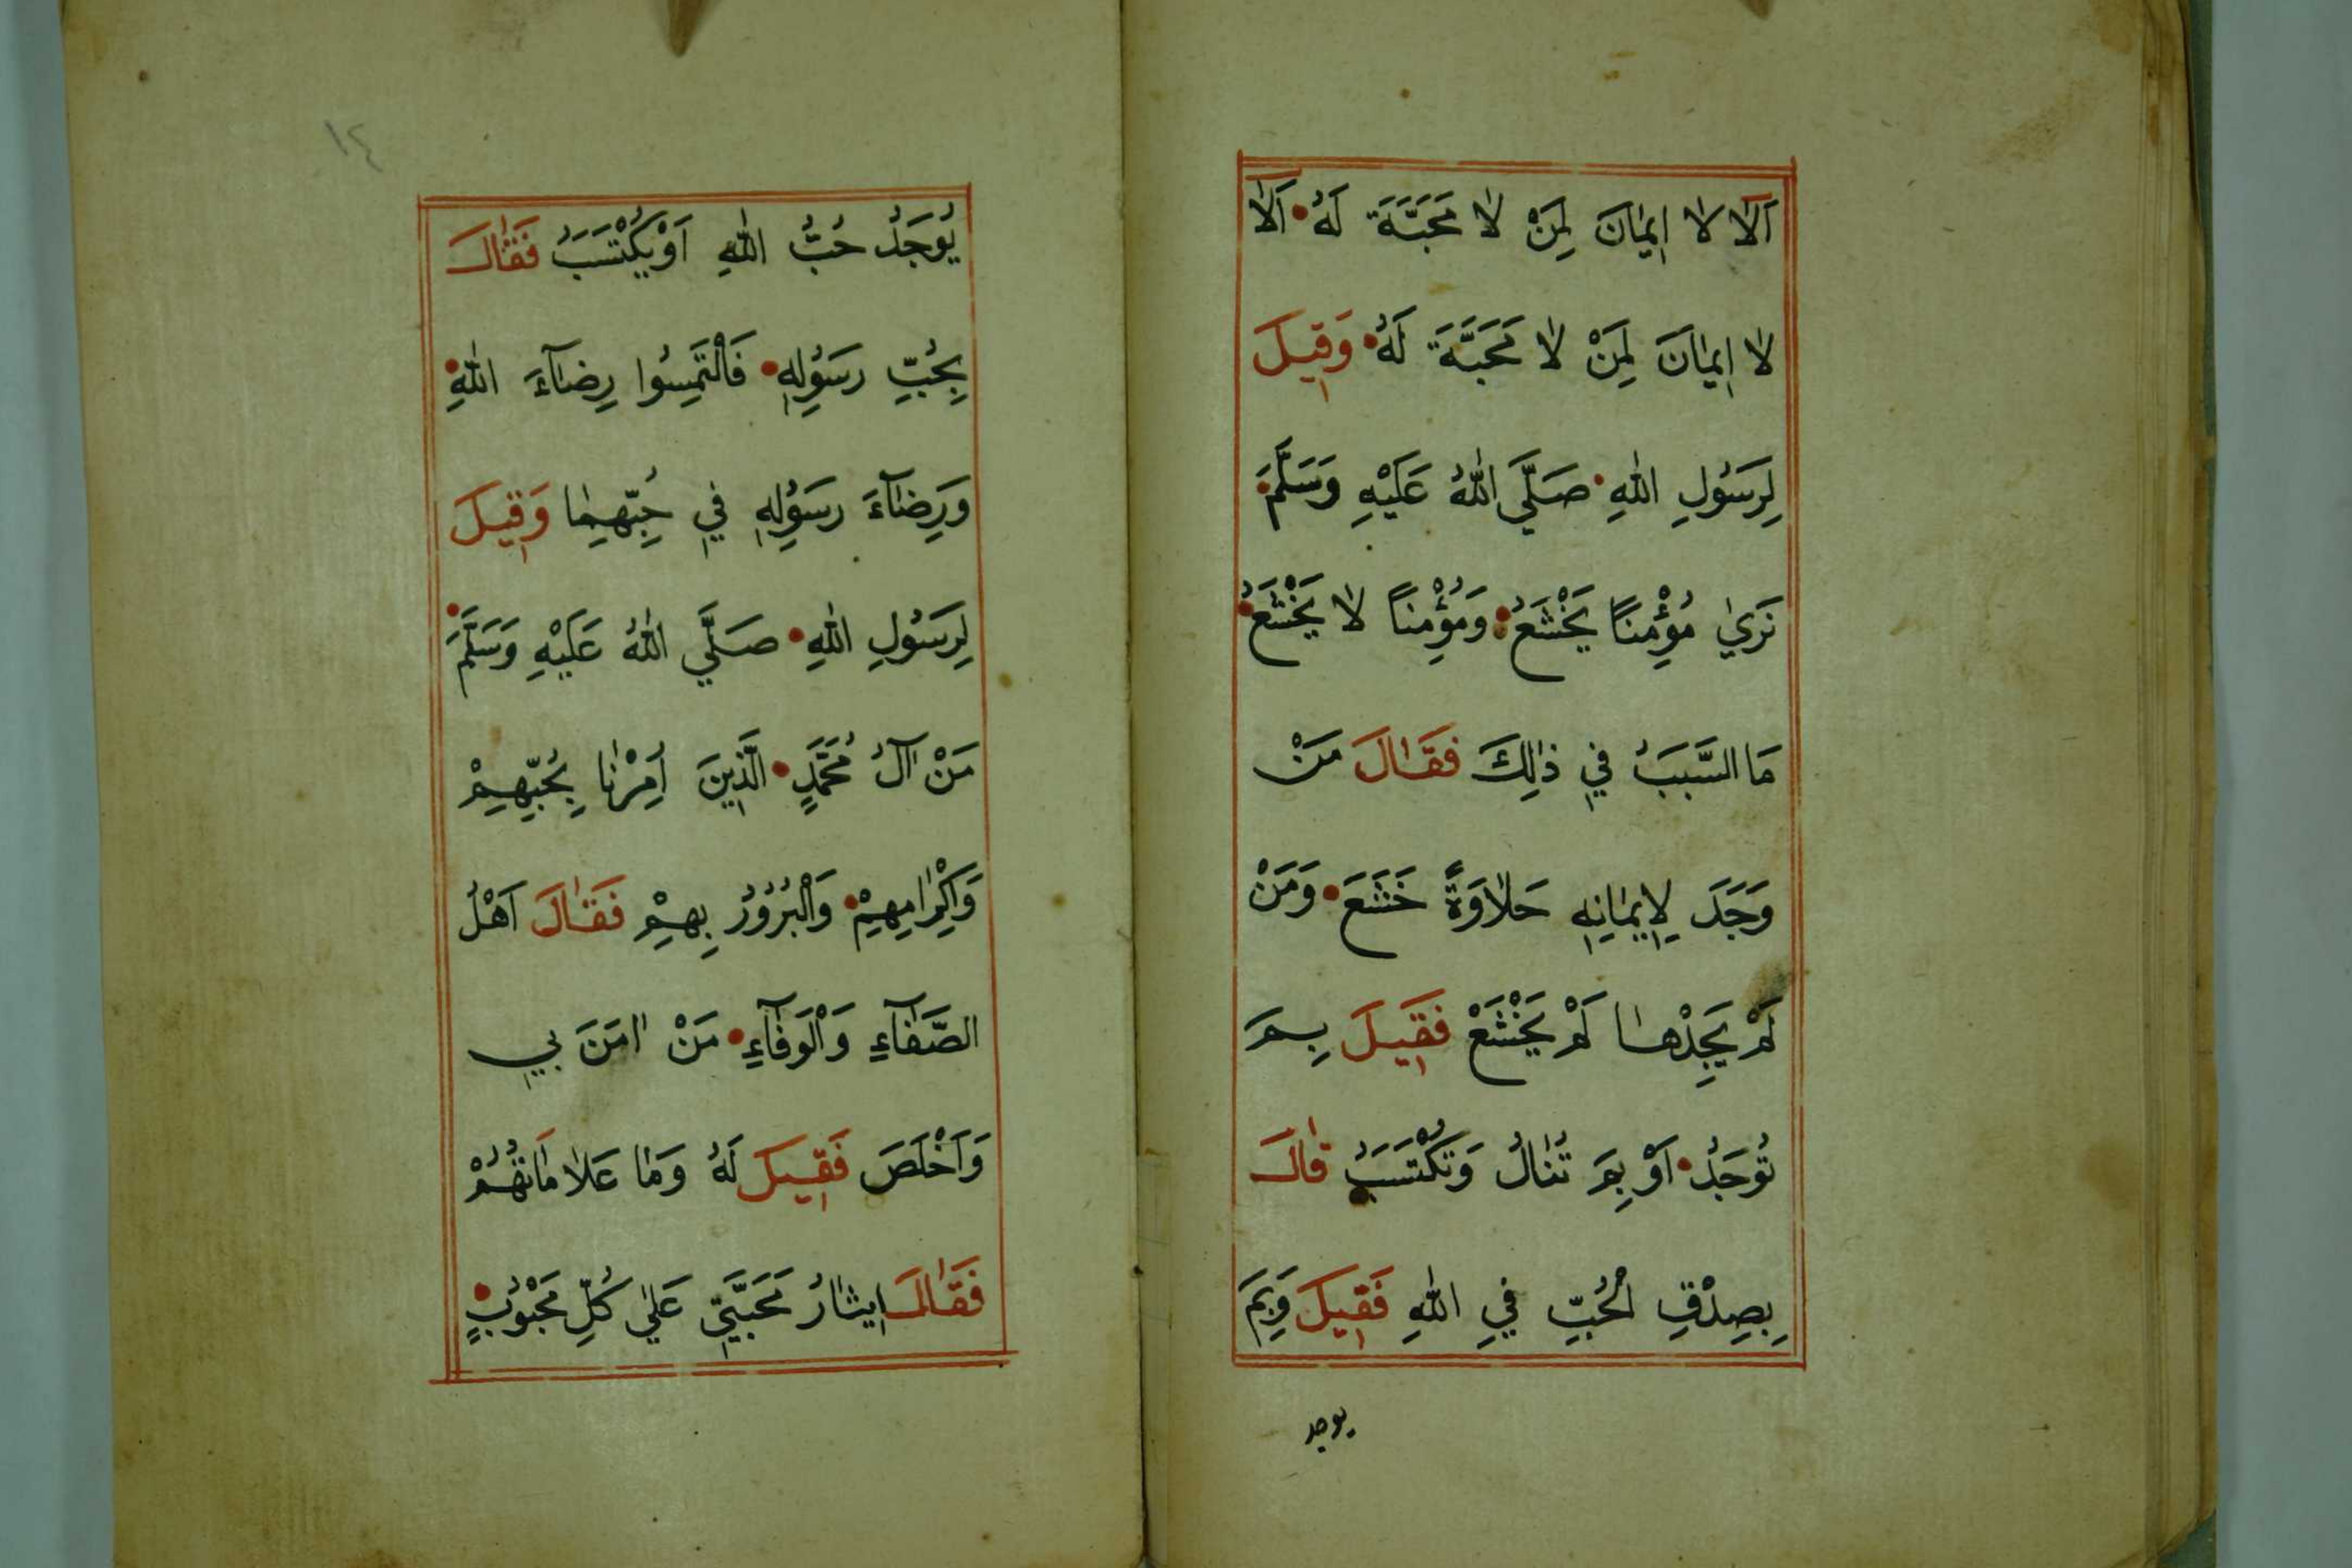 اَلَا لَا اِيمَانَ لِمَنْ لَا مَحَبَّةَ لَهُ اَلَا
لَا اِيمَانَ لِمَنْ لَا مَحَبَّةَ لَهُ وَقِيلَ
لِرَسُولِ اللهِ صَلَّي اللهُ عَلَيْهِ وَسَلَّمَ
نَرَي مُؤْمِنًا يَخْشَعُ وَمُؤْمِنًا لَا يَخْشَعُ
مَا السَّبَبُ فِي ذٰلِكَ فَقَالَ مَنْ
وَجَدَ لِاِيمَانِهِ حَلَاوَةً خَشَعَ وَمَنْ
لَمْ يَجِدْهَا لَمْ يَخْشَعْ فَقِيلَ بِمَ
تُوجَدُ اَوْ بِمَ تُنَالُ وَتُكْتَسَبُ قَالَ
بِصِدْقِ الْحُبِّ فِي اللهِ فَقِيلَ وَبِمَ
يوجد
١٤
يُوجَدُ حُبُّ اللهِ اَوْ يُكْتَسَبُ فَقَالَ
بِحُبِّ رَسُولِهِ فَالْتَمِسُوا رِضَآءَ اللهِ
وَرِضَآءَ رَسُولِهِ فِي حُبِّهِمَا وَقِيلَ
لِرَسُولِ اللهِ صَلَّي اللهُ عَلَيْهِ وَسَلَّمَ
مَنْ اٰلُ مُحَمَّدٍ الَّذِينَ اُمِرْنَا بِحُبِّهِمْ
وَاِكْرَامِهِمْ وَالْبُرُورُ بِهِمْ فَقَالَ اَهْلُ
الصَّفَآءِ وَالْوَفَآءِ مَنْ اٰمَنَ بِي
وَاَخْلَصَ فَقِيلَ لَهُ وَمَا عَلَامَاتُهُمْ
فَقَالَ اِيثَارُ مَحَبَّتِي عَلَي كُلِّ مَحْبُوبٍ